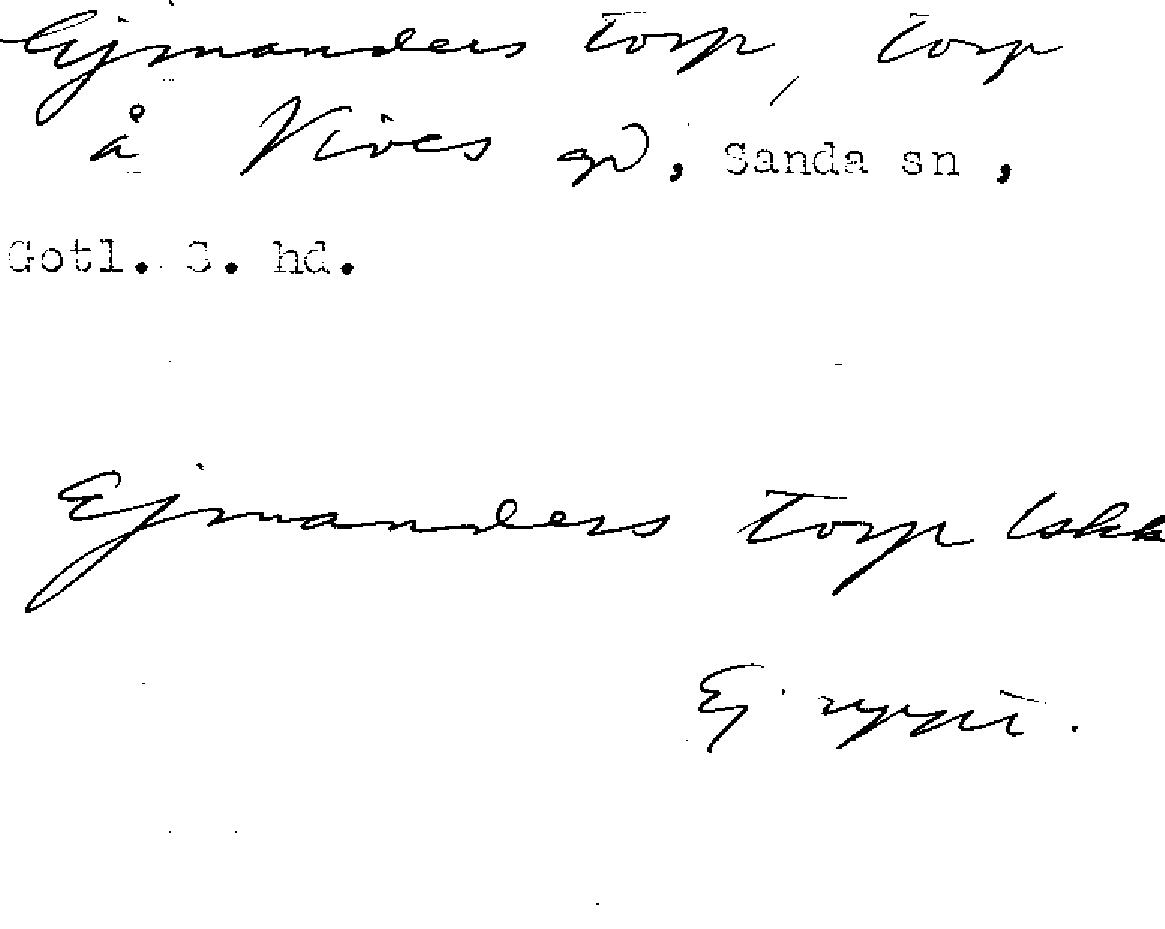 Ejmanders torp, torp
å Vives gd, Sanda sn,
Gotl. S. hd.
Ejmanders torp Lskk
Ej nypt.